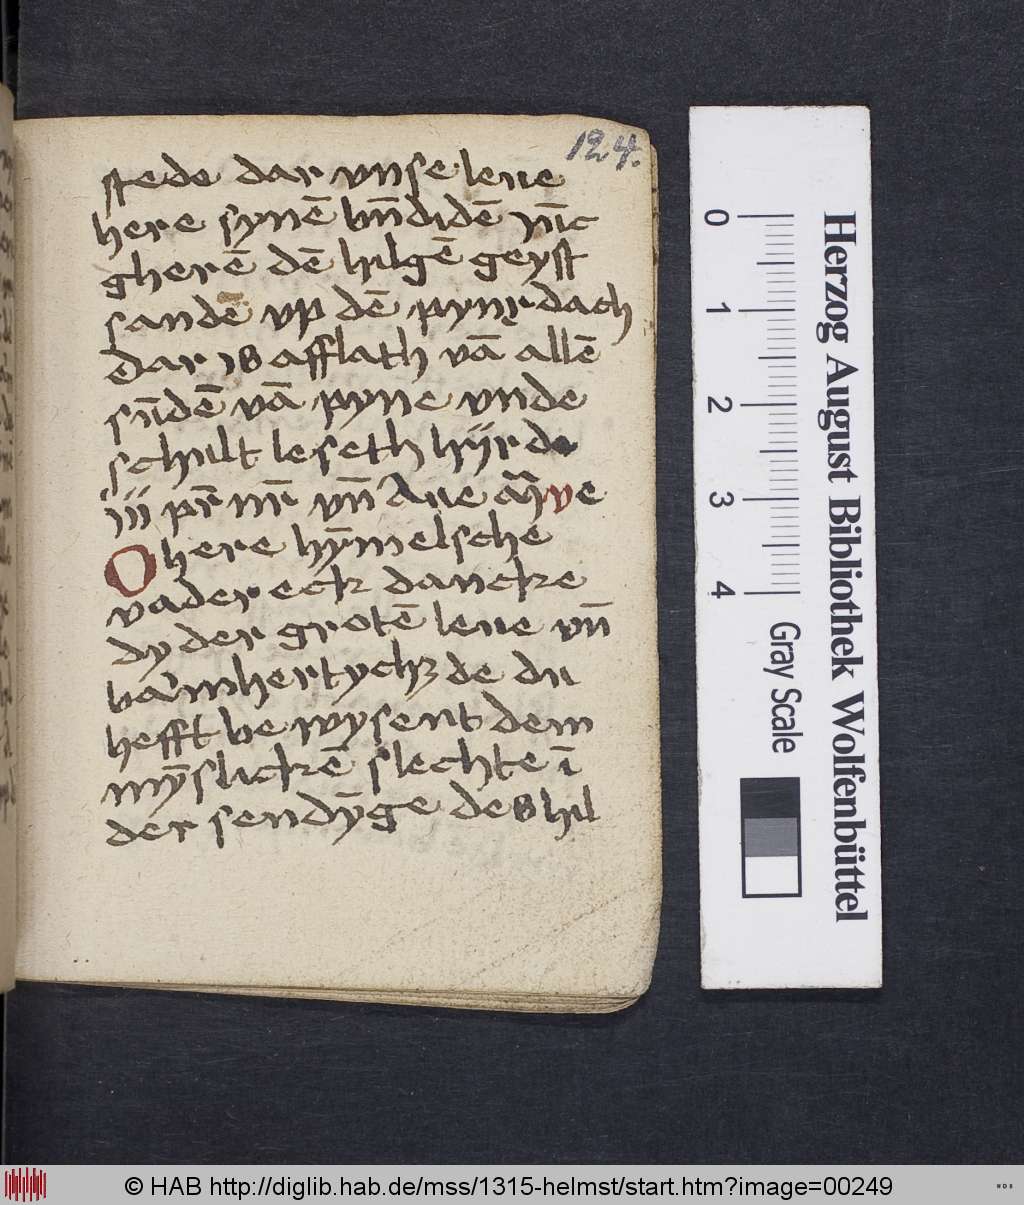 124.
stede dar vnse leue
here synē bn̄didē
gherē dē hilgē geyst
sandē vp dē dach
dar is afflath vā allē
sn̄dē vā pyne vnde
schult leseth hyr de
iij pr nr vn̄ Aue
O here hȳmelsche
vader eck dancke
dy der grotē leue vn̄
de du
hefft be wysent dem
mȳslickē slechte ī
der sendȳge des hil
0
1
2
3
4
Gray Scale
Herzog August Bibliothek Wolfenbüttel
© HAB http://diglib.hab.de/mss/1315-helmst/start.htm?image=00249